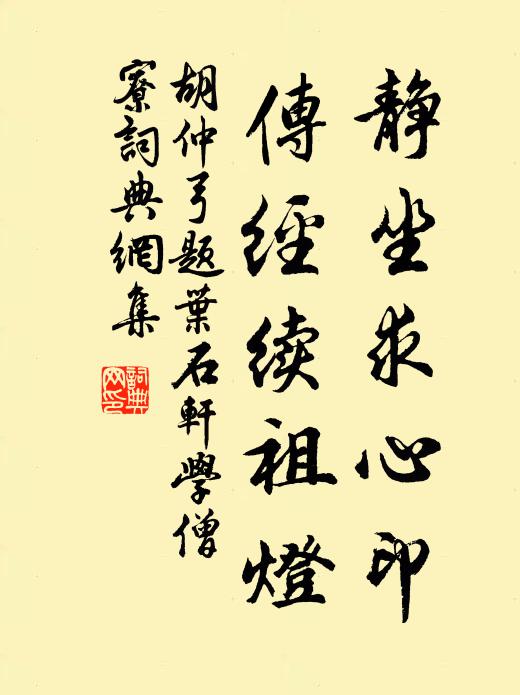 靜坐求心印
傳經續祖燈
胡仲弓題葉石軒學僧
寮詞典網集
詞典網印